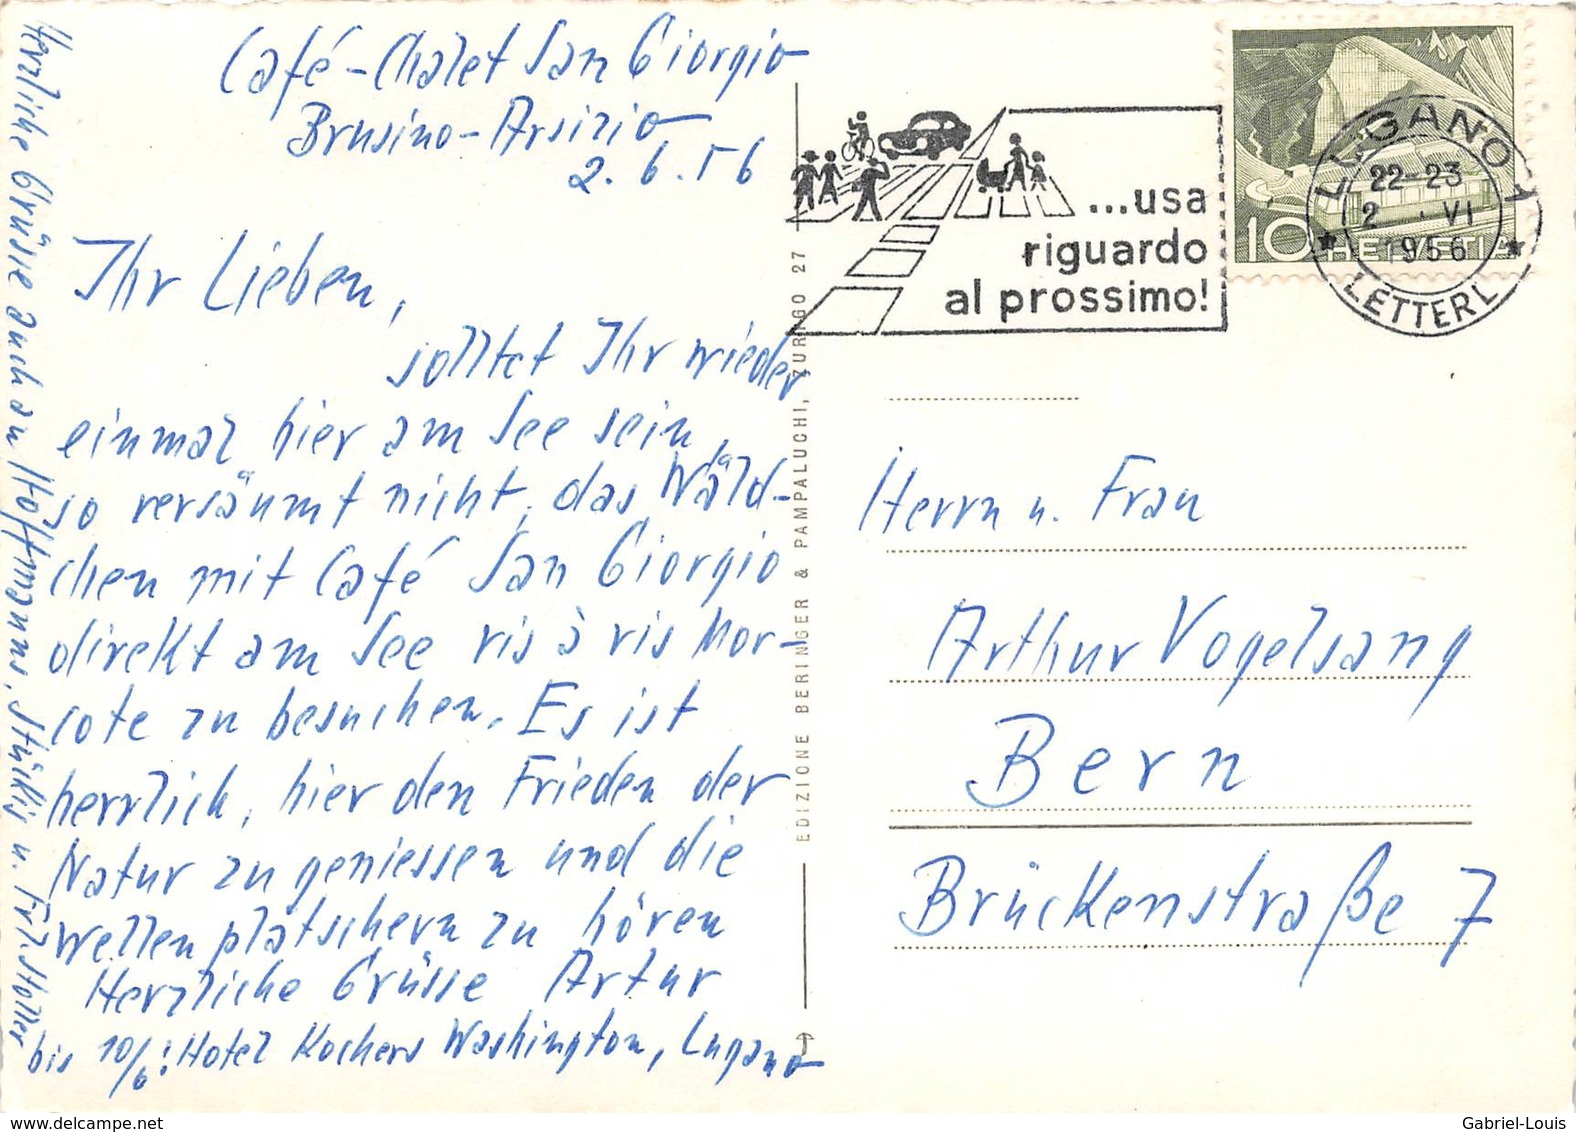 Café-Chalet San Giorgio
Brusino-Arsizio
2.6.56
Ihr Lieben,
solltet Ihr wieder
einmal hier am See sein,
so versäumt nicht, das Wäld-
chen mit Café San Giorgio
direkt am See vis à vis Mor-
cote zu besuchen. Es ist
herrlich, hier den Frieden der
Natur zu geniessen und die
Wellen plätschern zu hören
Herzliche Grüsse Artur
bis 10/6: Hotel Kochers Washington, Lugano
Herzliche Grüsse auch an Hoffmanns, Stückis u. Frl. Stoller
EDIZIONE BERINGER & PAMPALUCHI, ZURIGO 27
...usa
riguardo
al prossimo!
10 HELVETIA
LUGANO 1
22-23
2 . VI
1956
LETTERE
Herrn u. Frau
Arthur Vogelsang
Bern
Brückenstraße 7
Gabriel-Louis